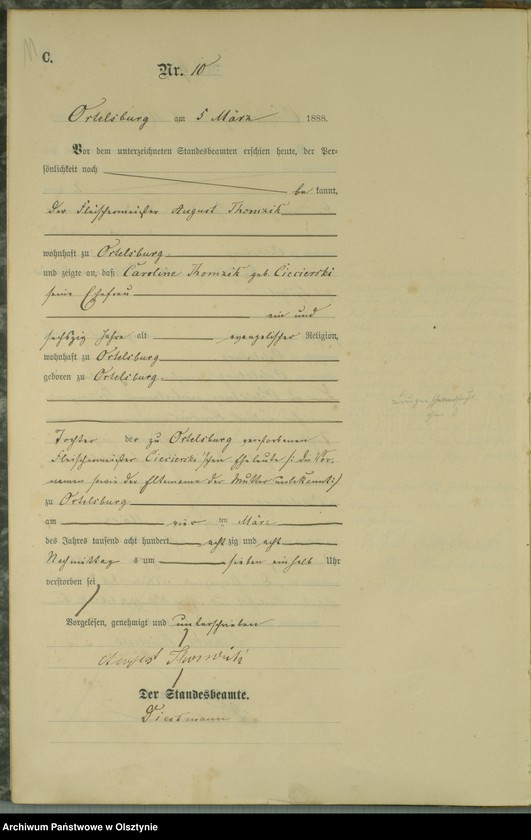 C.
Nr. 10
Ortelsburg am 5 März 1888.
Vor dem unterzeichneten Standesbeamten erschien heute, der Per-
sönlichkeit nach
be kannt,
der Fleischermeister August Thomzik
wohnhaft zu Ortelsburg
und zeigte an, daß Caroline Thomzik geb. Ciecierski
seine Ehefrau
ein und
sechszig Jahre alt evangelischer Religion,
wohnhaft zu Ortelsburg
geboren zu Ortelsburg
Tochter der zu Ortelsburg verstorbenen
Fleischermeister Ciecierski'schen Eheleute /: die Vor-
namen sowie der Elternname der Mutter unbekannt :/
zu Ortelsburg
am vier ten März
des Jahres tausend acht hundert acht zig und acht
Nachmittag s um sieben einhalb Uhr
verstorben sei
Vorgelesen, genehmigt und unterschrieben
August
Der Standesbeamte.
Archiwum Państwowe w Olsztynie